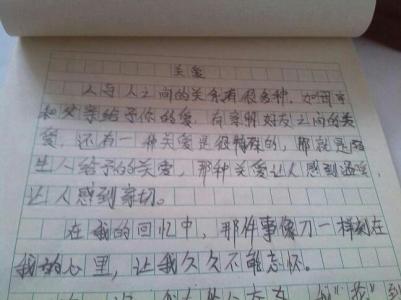 关爱
人与人之间的关系有很多种，如母亲
和父亲给予你的爱，有亲朋好友之间的关
爱，还有一种关爱是很特殊的，那就是陌
生人给予的关爱，那种关爱让人感到温暖，
让人感到亲切。
在我的回忆中，那件事像刀一样刻在
我的心里，让我久久不能忘怀。